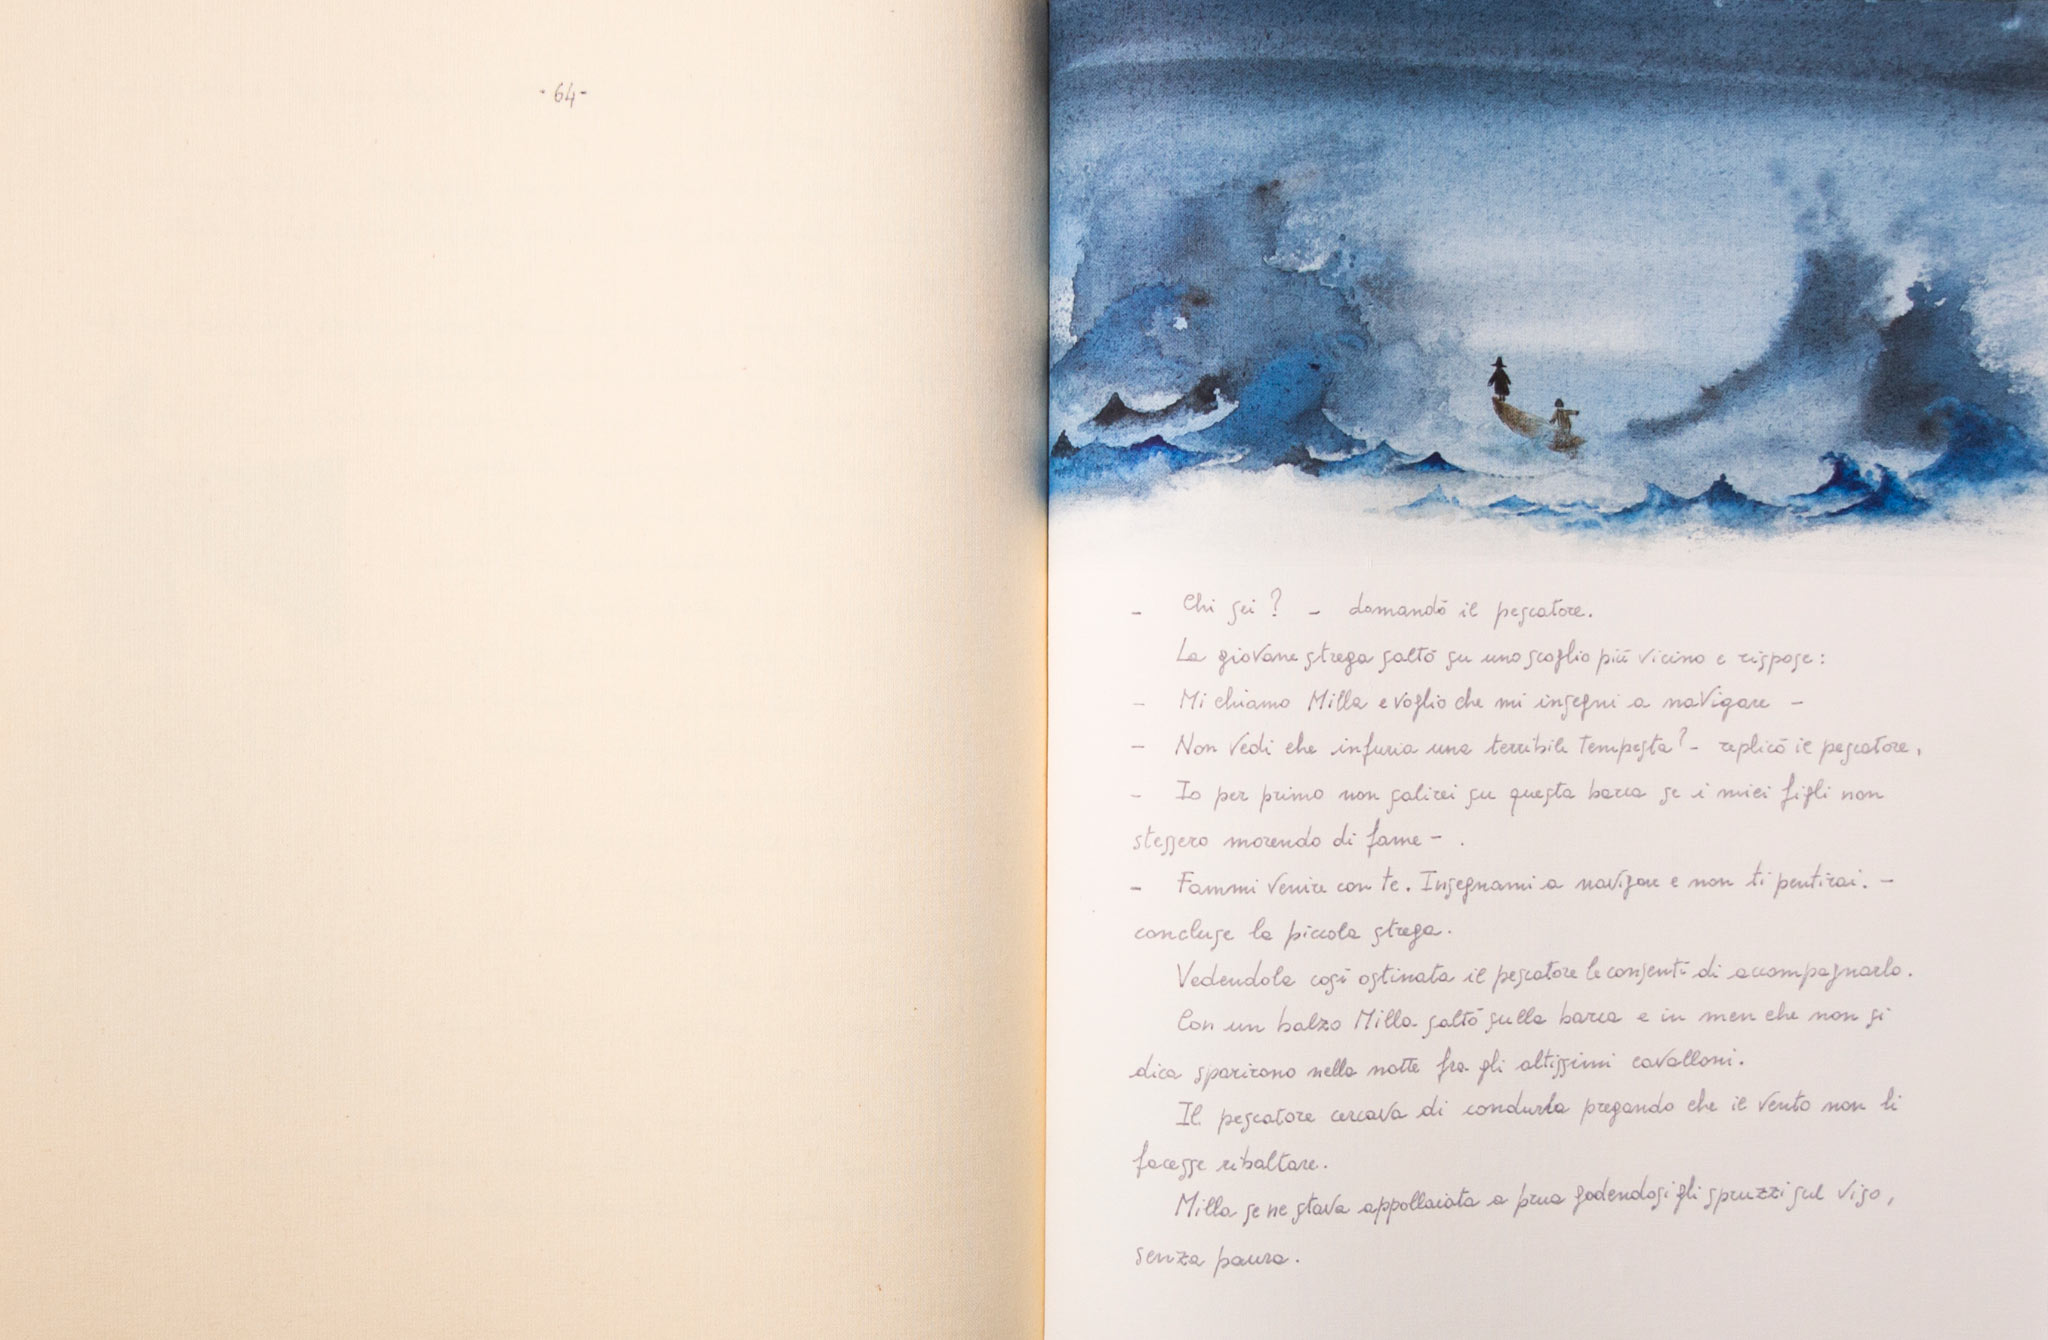 - 64 -
- Chi sei? - domandò il pescatore.
La giovane strega saltò su uno scoglio più vicino e rispose:
- Mi chiamo Milla e voglio che mi insegni a navigare -
- Non vedi che infuria una terribile tempesta? - replicò il pescatore,
- Io per primo non salirei su questa barca se i miei figli non
stessero morendo di fame - .
- Fammi venire con te. Insegnami a navigare e non ti pentirai. -
concluse la piccola strega.
Vedendola così ostinata il pescatore le consentì di accompagnarlo.
Con un balzo Milla saltò sulla barca e in men che non si
dica sparirono nella notte fra gli altissimi cavalloni.
Il pescatore cercava di condurla pregando che il vento non li
facesse ribaltare.
Milla se ne stava appollaiata a prua godendosi gli spruzzi sul viso,
senza paura.